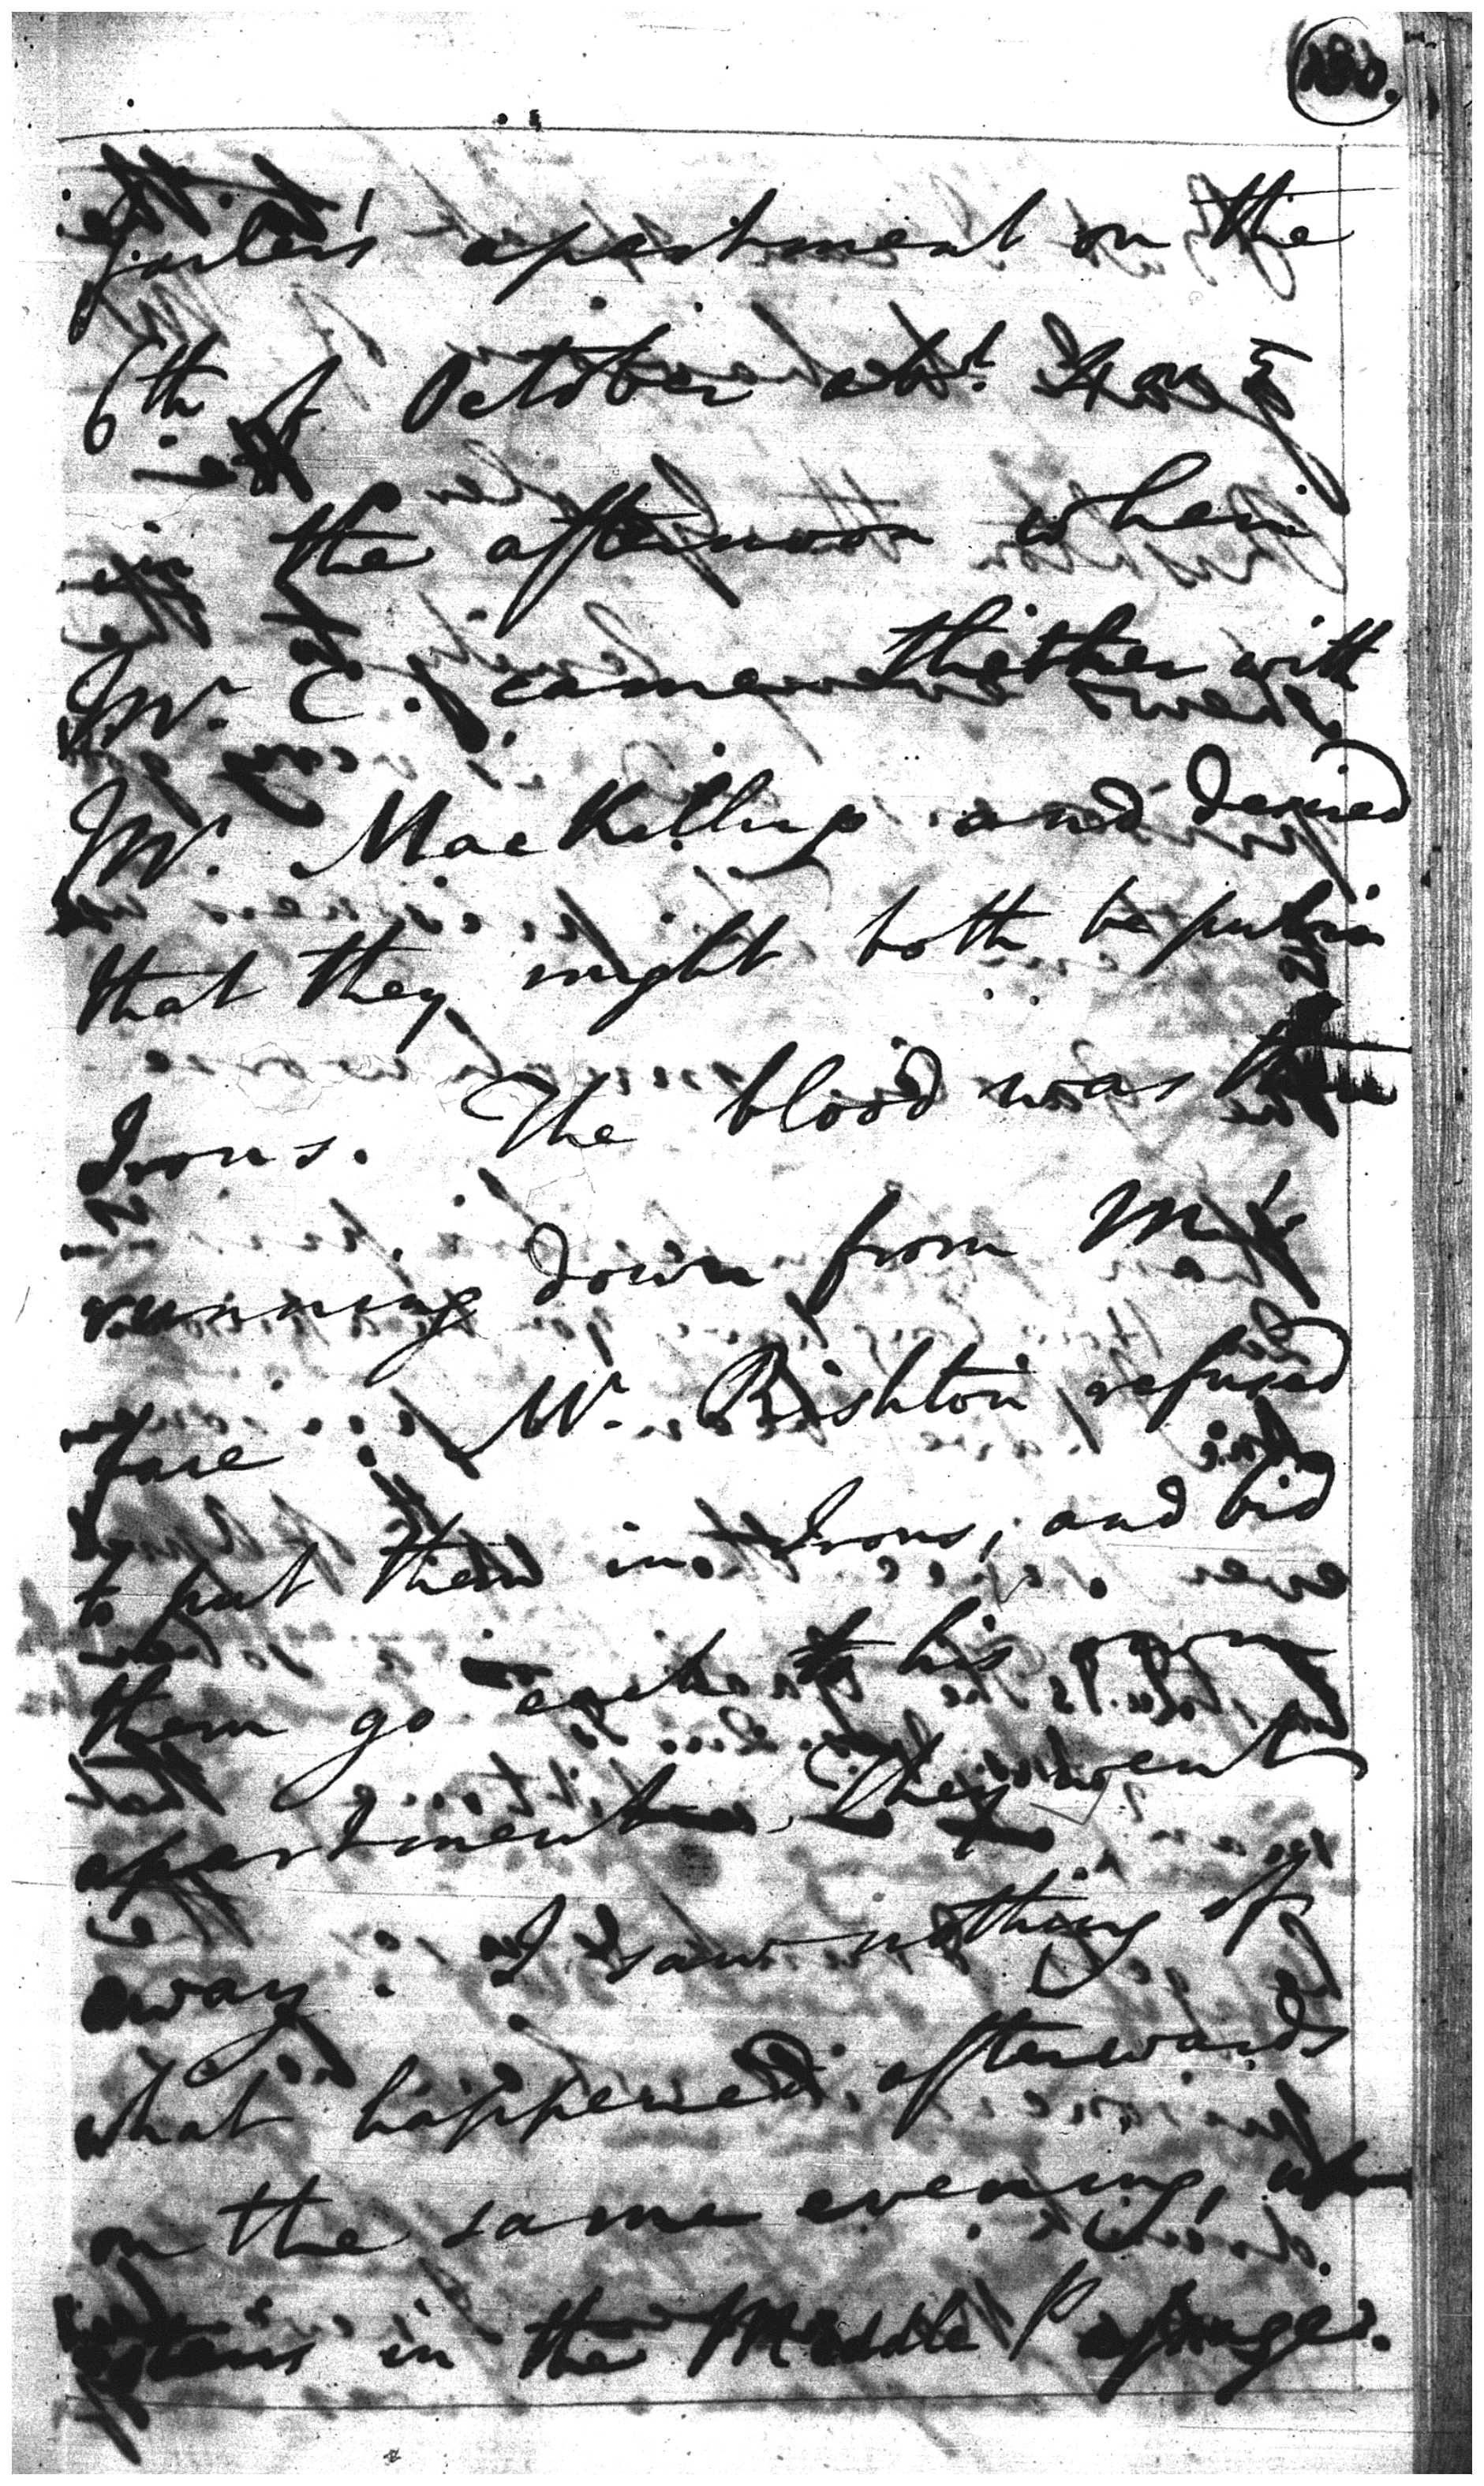 Jailer's apartment on the
6th of October abt. 4 or 5
in the afternoon when
Mr. C. came thither with
Mr. MacKillup and desired
that they might both be put in
Irons. The blood was then
running down from Mr
face: Mr. Rishton refused
to put them in Irons, and bid
them go each to his own
apartment. They went
away: I saw nothing of
what happened afterwards
on the same evening,
in the Middle Passage.